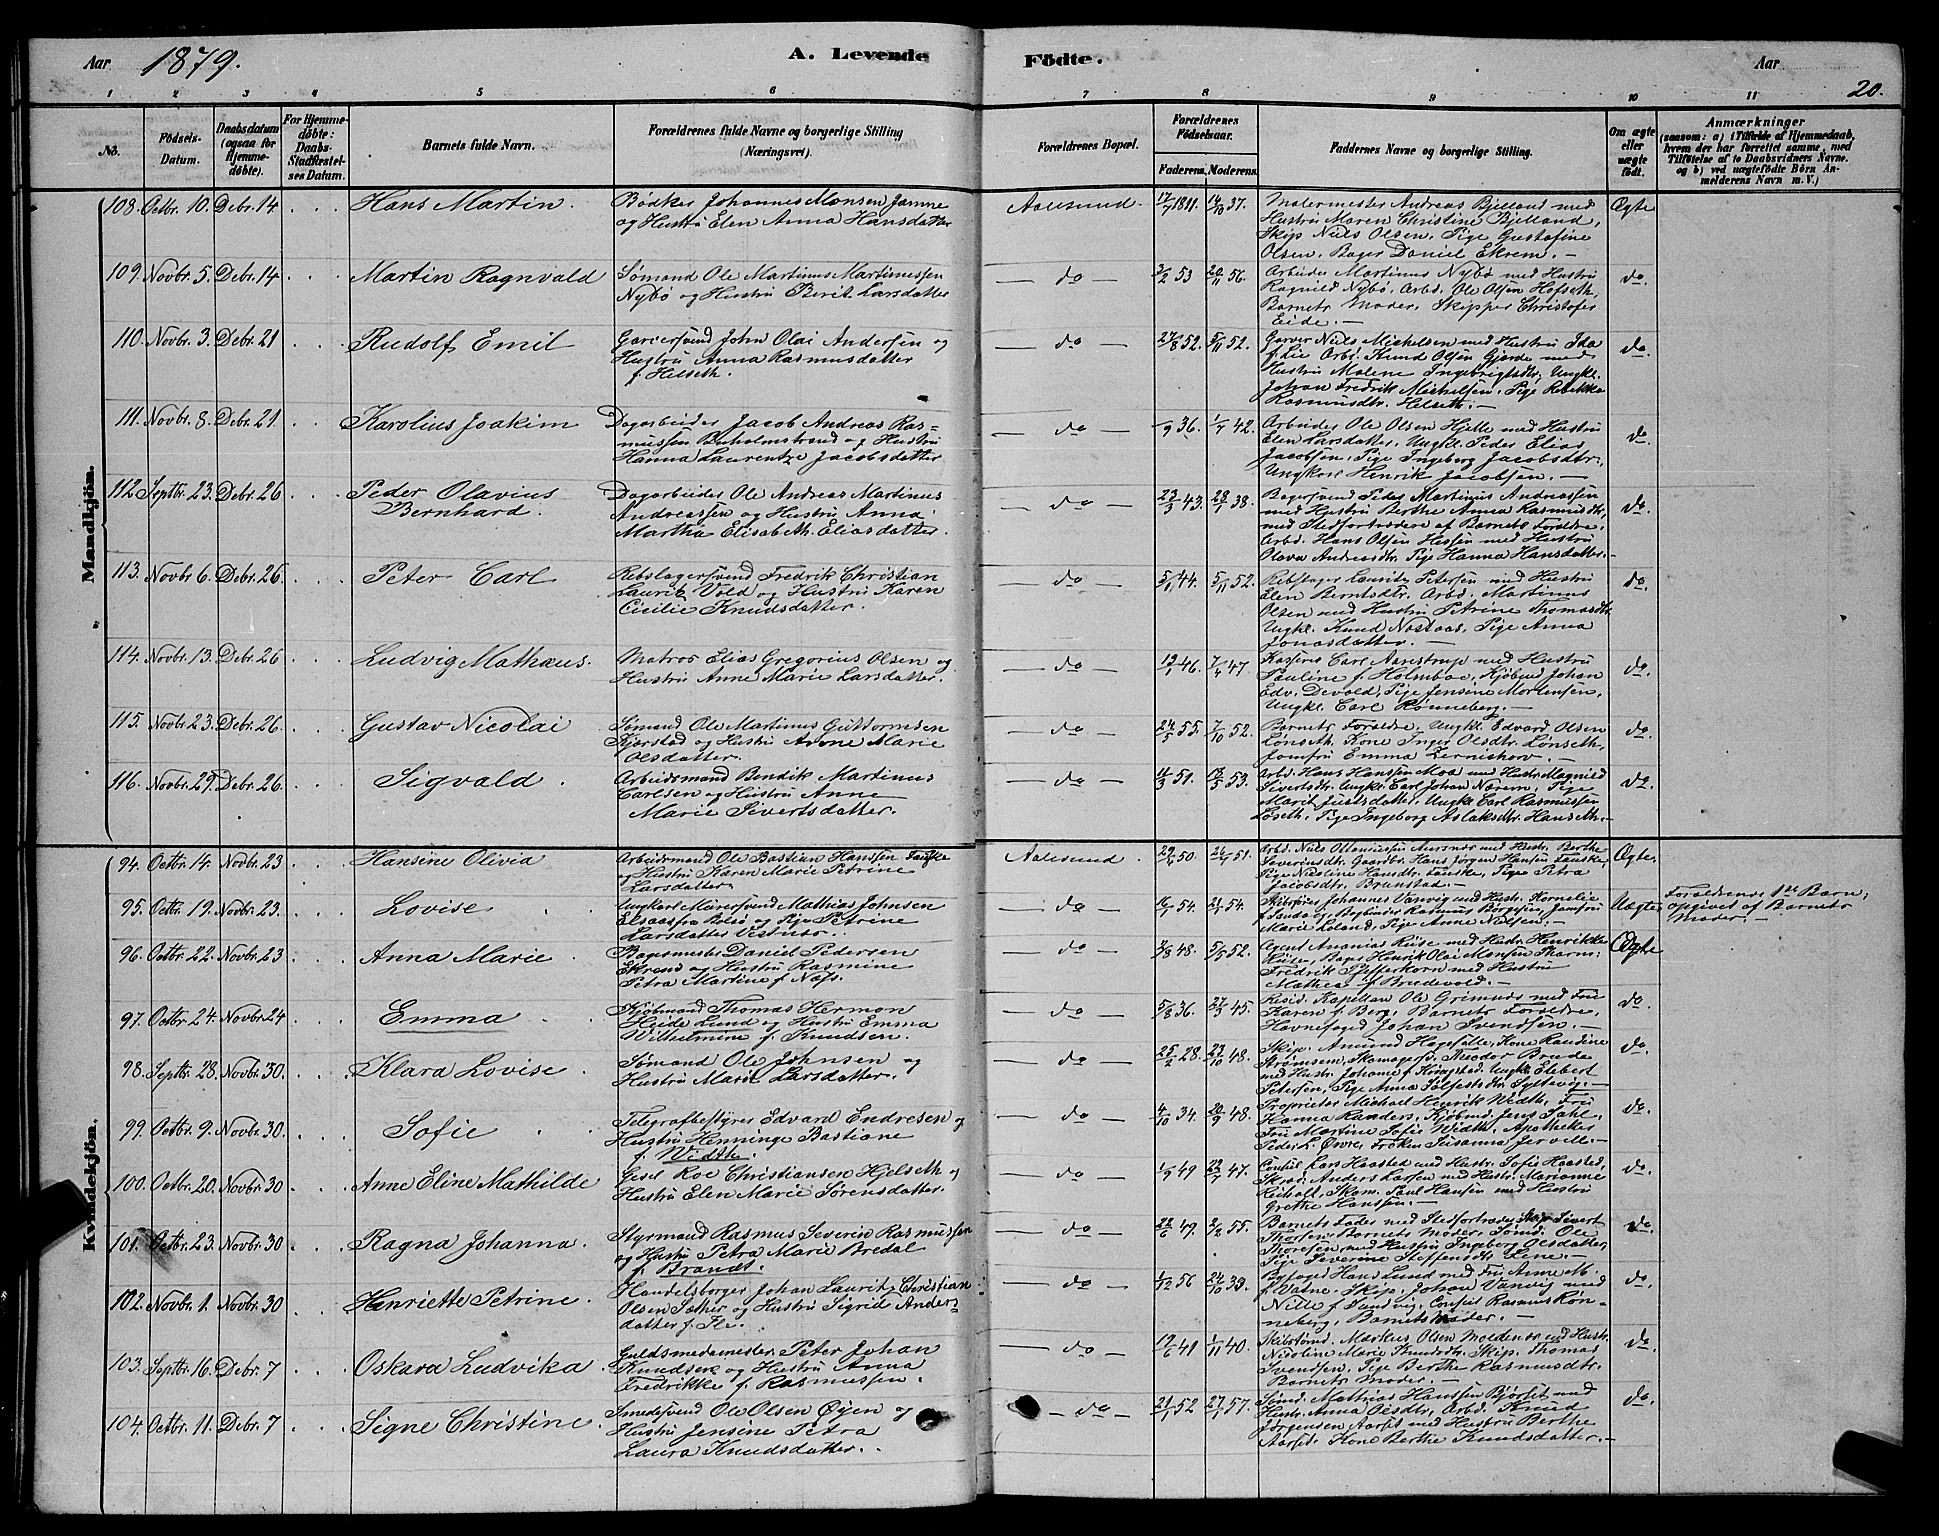 Aar 1879. A. Levende Födte. Aar 20.
1 2 3 4 5 6 7 8 9 10 11
No. Födsels-Datum. Daabsdatum (ogsaa for Hjemmedöbte). For Hjemmedöbte: Daabs-Stadfæstelses Datum. Barnets fulde Navn. Forældrenes fulde Navne og borgerlige Stilling (Næringsvei). Forældrenes Bopæl. Forældrenes Födselsaar. Faderens. Moderens. Faddernes Navne og borgerlige Stilling. Om ægte eller uægte födt. Anmærkninger (saasom: a) i Tilfælde af Hjemmedaab, hvem der har forrettet samme, med Tilföielse af to Daabsvidners Navne. og b) ved uægtefödte Börn Anmelderens Navn m. V.)
Mandkjön.
108. Octbr. 10. Debr. 14 Hans Martin. Bödker Johannes Monsen Jamne og Hustru Elen Anna Hansdatter Aalesund. 17/7 1811. 14/10 37. Malermester Andreas Bjelland med Hustru Maren Christine Bjelland, Skip. Niels Olsen, Pige Gustafine Olsen, Bager Daniel Ekrem. Ægte
109. Novbr. 5. Debr. 14 Martin Ragnvald Sømand Ole Martinus Martinussen Nybø og Hustru Berit Larsdatter do 3/2 53 20/11 56. Arbeider Martinus Nybø med Hustru Ragnild Nybø. Arbd. Ole Olsen Hofseth, Barnets Moder, Skipper Christofer Eide. do.
110. Novbr. 3. Debr. 21 Rudolf Emil Garversvend John Olai Andersen og Hustru Anna Rasmusdatter f. Helseth. do 27/8 52. 5/11 52. Garver Niels Michelsen med Hustru Ida f. Lie Arbd. Knud Olsen Gjerde med Hustru Malene Ingebrigtsdtr. Ungkl. Johan Fredrik Michelsen, Pige Rebekka Rasmusdtr. Helseth. do
111. Novbr. 8. Debr. 21 Karolius Joakim Dagarbeider Jacob Andreas Rasmussen Buholmstrand og Hustru Hanna Laurentze Jacobsdatter do 36. 42. Arbeider Ole Olsen Hjelle med Hustru Elen Larsdatter, Ungkl. Peder Elias Jacobsen, Pige Ingeborg Jacobsdtr., Ungkarl Henrik Jacobsen. do
112. Septbr. 23. Debr. 26 Peder Olavius Bernhard. Dagarbeider Ole Andreas Martinus Andreassen og Hustru Anna Martha Elisabeth Eliasdatter. do 23/3 43. 28/1 38. Bagersvend Peder Martinus Andreassen med Hustru Berthe Anna Rasmusdtr. med Stedfortrædere af Barnets Forældre. Arbd. Hans Olsen Hessen med Hustru Olava Andreasdtr. Pige Hanna Hansdatter. do.
113. Novbr. 6. Debr. 26. Peter Carl Rebslagersvend Fredrik Christian Lauritz Vold og Hustru Karen Cicilie Knudsdatter. do 5/1 44. 5/11 52. Rebslager Lauritz Petersen med Hustru Elen Berntsdtr. Arbd. Martinus Olsen med Hustru Petrine Thomasdtr. Ungkl. Knud Nastaas, Pige Anna Jonasdatter. do.
114. Novbr. 13. Debr. 26 Ludvig Mathæus. Matros Elias Gregorius Olsen og Hustru Anne Marie Larsdatter. do 46. 7/4 47. Kasserer Carl Aarestrup med Hustru Pauline f. Holmboe, Kjöbmd Johan Edv. Devold, Pige Jensine Mortensen, Ungkl. Carl Rønneberg. do.
115. Novbr. 23. Debr. 26. Gustav Nicolai Sømand Ole Martinus Guttormsen Fjørstad og Hustru Anne Marie Olsdatter. do 24/5 55. 7/10 52. Barnets Forældre, Ungkl. Edvard Olsen Lønseth, Kone Inger Olsdtr. Lønseth, Jomfru Emma Zernichow. do.
116. Novbr. 29. Debr. 26. Sigvald Arbeidsmand Bendik Martinus Carlsen og Hustru Anne Marie Sivertsdatter. do 11/3 51. 18/5 53. Arbd. Hans Hanssen Moa med Hustr. Magnild Sivertsdtr. Ungkl. Carl Johan Nærem, Pige Marit Justsdatter, Ungkl. Carl Rasmussen Løseth, Pige Ingeborg Aslaksdtr. Hanseth. do.
Kvindekjön.
94. Octbr. 14. Novbr. 23 Hansine Olivia Arbeidsmand Ole Bastian Hanssen Fauske og Hustru Karen Marie Petrine Larsdatter. Aalesund. 50. 51. Arbd. Niels Ottoniussen Aursnes med Hustr. Berthe Severinsdtr. Gaardbr. Hans Jörgen Hansen Fauske, Pige Nicoline Hansdtr. Fauske, Pige Petra Jacobsdtr. Brunstad. Ægte
95. Octbr. 19. Novbr. 23. Lovise Ungkarl Murersvend Mathias Johnsen Elsaas fra Volsø og Pige Petrine Larsdatter Vestnes. do 54. 54. Johannes Vanvig med Hustr. Kornelie f. Landa, Rasmus Bergesen, Jomfru Marie Leland, Pige Anne Nielsen. Uægte Forældrenes 1ste Barn, opgivet af Barnets Moder.
96. Octbr. 22. Novbr. 23 Anna Marie Bagermester Daniel Pedersen Ekrem og Hustru Rasmine Petra Martine f. Næss. do 48. 52. Agent Ananias Riise med Hustr. Henrikke Riise, Bager Henrik Olai Monsen Skarn: Fredrik Pfefferkorn med Hustru Mathea f. Brudevold. Ægte
97. Octbr. 24. Novbr. 24 Emma Kjöbmand Thomas Herman Heide Lund og Hustru Emma Wilhelmine f. Knudsen. do 5/8 36. 27/3 45. Resid. Kapellan Ole Grimnes med Fru Karen f. Berg, Barnets Forældre, Havnefoged Johan Svendsen. do.
98. Septbr. 28. Novbr. 30. Klara Lovise Sømand Ole Johnsen og Hustru Marie Larsdatter. do 25/2 28. 23/10 48. Skip. Amund Hagesæter, Kone Randine Strømsem, Skomagersv. Theodor Brude med Hustr. Johanne f. Ringstad. Ungkl. Elebert Petersen, Pige Anna Sølfestsdtr. Syltevig. do.
99. Octbr. 9. Novbr. 30. Sofie Telegrafbestyrer Edvard Endresen og Hustru Henninge Bastiane f. Width. do 4/10 34 20/9 48. Proprietær Michael Henrik Width, Fru Hanna Randers, Kjöbmd. Jens Dahl, Fru Martine Sofie Width, Apotheker Peder L. Øvre, Frøken Susanna Jervell. do.
100. Octbr. 20. Novbr. 30 Anne Eline Mathilde Gesel Roe Christiansen Hjelseth og Hustru Elen Marie Sørensdatter. do 49 47. Consul Lars Haasted med Hustr. Sofie Haasted, Skræd. Anders Larsen med Hustr. Marianne Kirholt, Skom. Paul Hansen med Hustru Grethe Hanssen. do.
101. Octbr. 23. Novbr. 30 Ragna Johanna. Styrmand Rasmus Severin Rasmussen og Hustru Petra Marie Bredal f. Brandt. do 22/6 49. 2/8 55. Barnets Fader med Stedfortræder Skip. Sivert Thorsen, Barnets Moder, Sömd. Ole Thoresen med Hustru Ingeborg Olsdatter, Pige Severine Steffensdtr. Lene. do.
102. Novbr. 1. Novbr. 30 Henriette Petrine. Handelsborger Johan Lauritz Christian Olsen Sæther og Hustru Sigrid Andersdatter f. Flo. do 1/12 56 24/10 39. Byfoged Hans Lund med Fru Anne M. f. Vatne, Skip. Johan Vanvig med Nille f. Sandvig, Consul Rasmus Rønneberg, Barnets Moder. do.
103. Septbr. 16. Debr. 7 Oskara Ludvika Guldsmedmester Peter Johan Knudsen og Hustru Anna Fredrikke f. Rasmussen. do 19/6 41 1/11 40. Skibstømd. Markus Olsen Moldenes med Hustr. Nicoline Marie Knudsdtr. Skip. Thomas Svendsen, Pige Berthe Rasmusdtr. Barnets Moder. do.
104. Octbr. 11. Debr. 7 Signe Christine. Smedesvend Ole Olsen Øyen og Hustru Jensine Petra Laura Knudsdatter. do 52 57. Sømd. Mathias Hanssen Bjørset med Hustr. Anna Olsdtr, Arbd. Knud Jørgensen Aarset med Hustru Berthe Aarset, Kone Berthe Knudsdatter. do